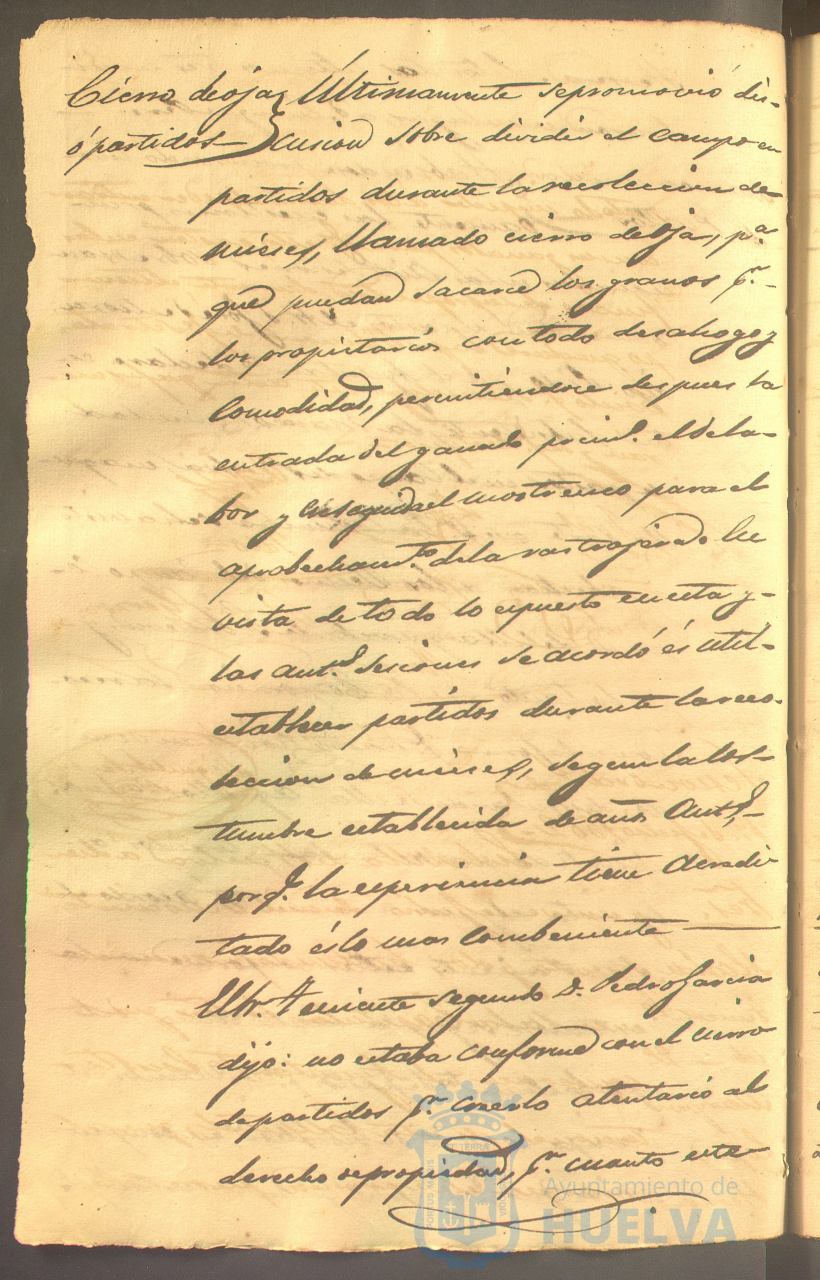 Cierro de oja Últimamente se promovió dis-
ó partidos — cusion sobre dividir el campo en
partidos durante la recoleccion de
mieses, llamado cierro de oja, pª
que puedan sacarce los granos pr.
los propietarios con todo desahogo y
comodidad, permitiendose despues la
entrada del ganado princl. el de la-
bor y en seguida el mostrenco para el
aprobechamto. de la rastrojera. En
vista de todo lo espuesto en esta y
las antes. sesiones se acordó és util
establecer partidos durante la reco-
leccion de mieses, segun la cos-
tumbre establecida de años antes.,
porq. la esperiencia tiene acredi-
tado és lo mas combeniente —
El Sr. Teniente segundo D. Pedro Garcia
dijo: no estaba conforme con el cierro
de partidos pr. creerlo atentario al
derecho de propiedad, pr. cuanto este
Ayuntamiento de
HUELVA